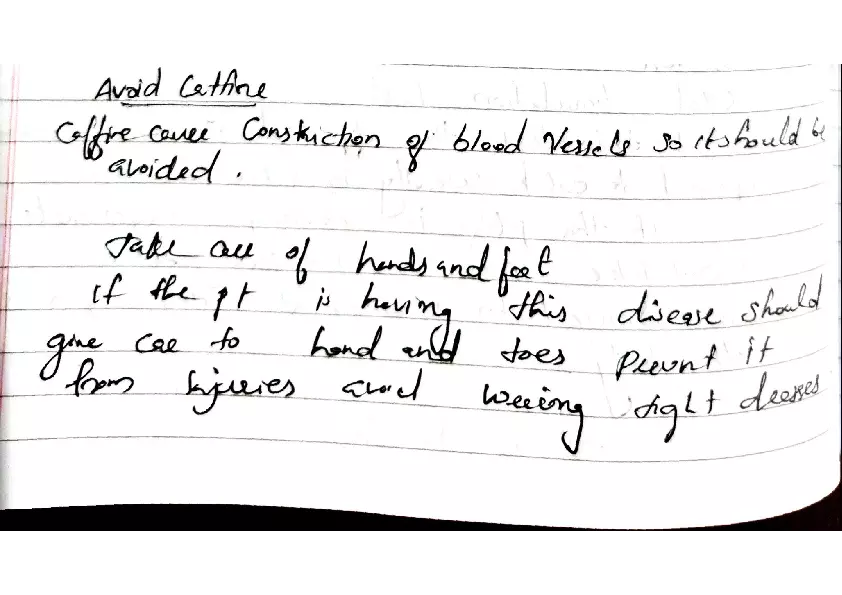 Avoid Caffine
Caffine cause Constriction of blood vessels so it should be
avoided.
Take care of hands and feet
if the pt is having this disease should
give care to hand and toes prevent it
from injuries avoid wearing tight dresses